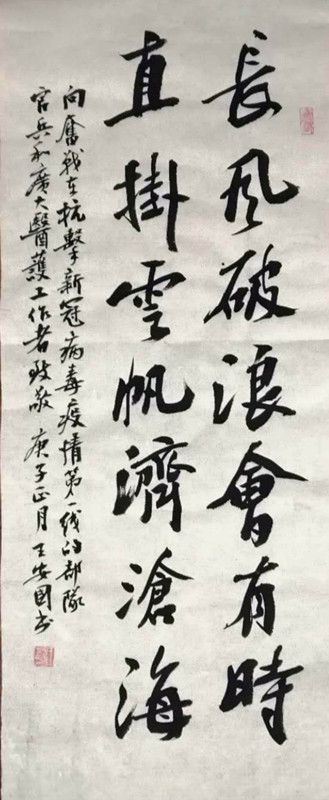 長风破浪會有時
直掛雲帆濟滄海
向奮戰在抗擊新冠病毒疫情第一线的部隊
官兵和廣大醫護工作者致敬 庚子正月 王安國书